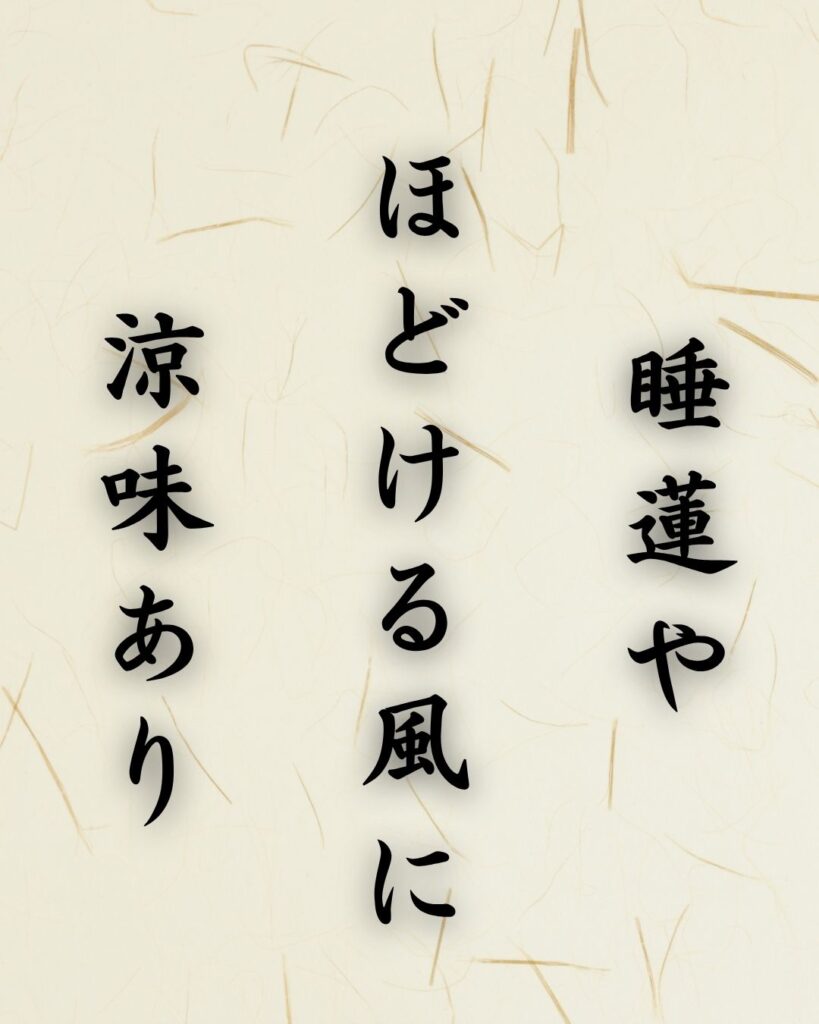 睡蓮や
ほどける風に
涼味あり